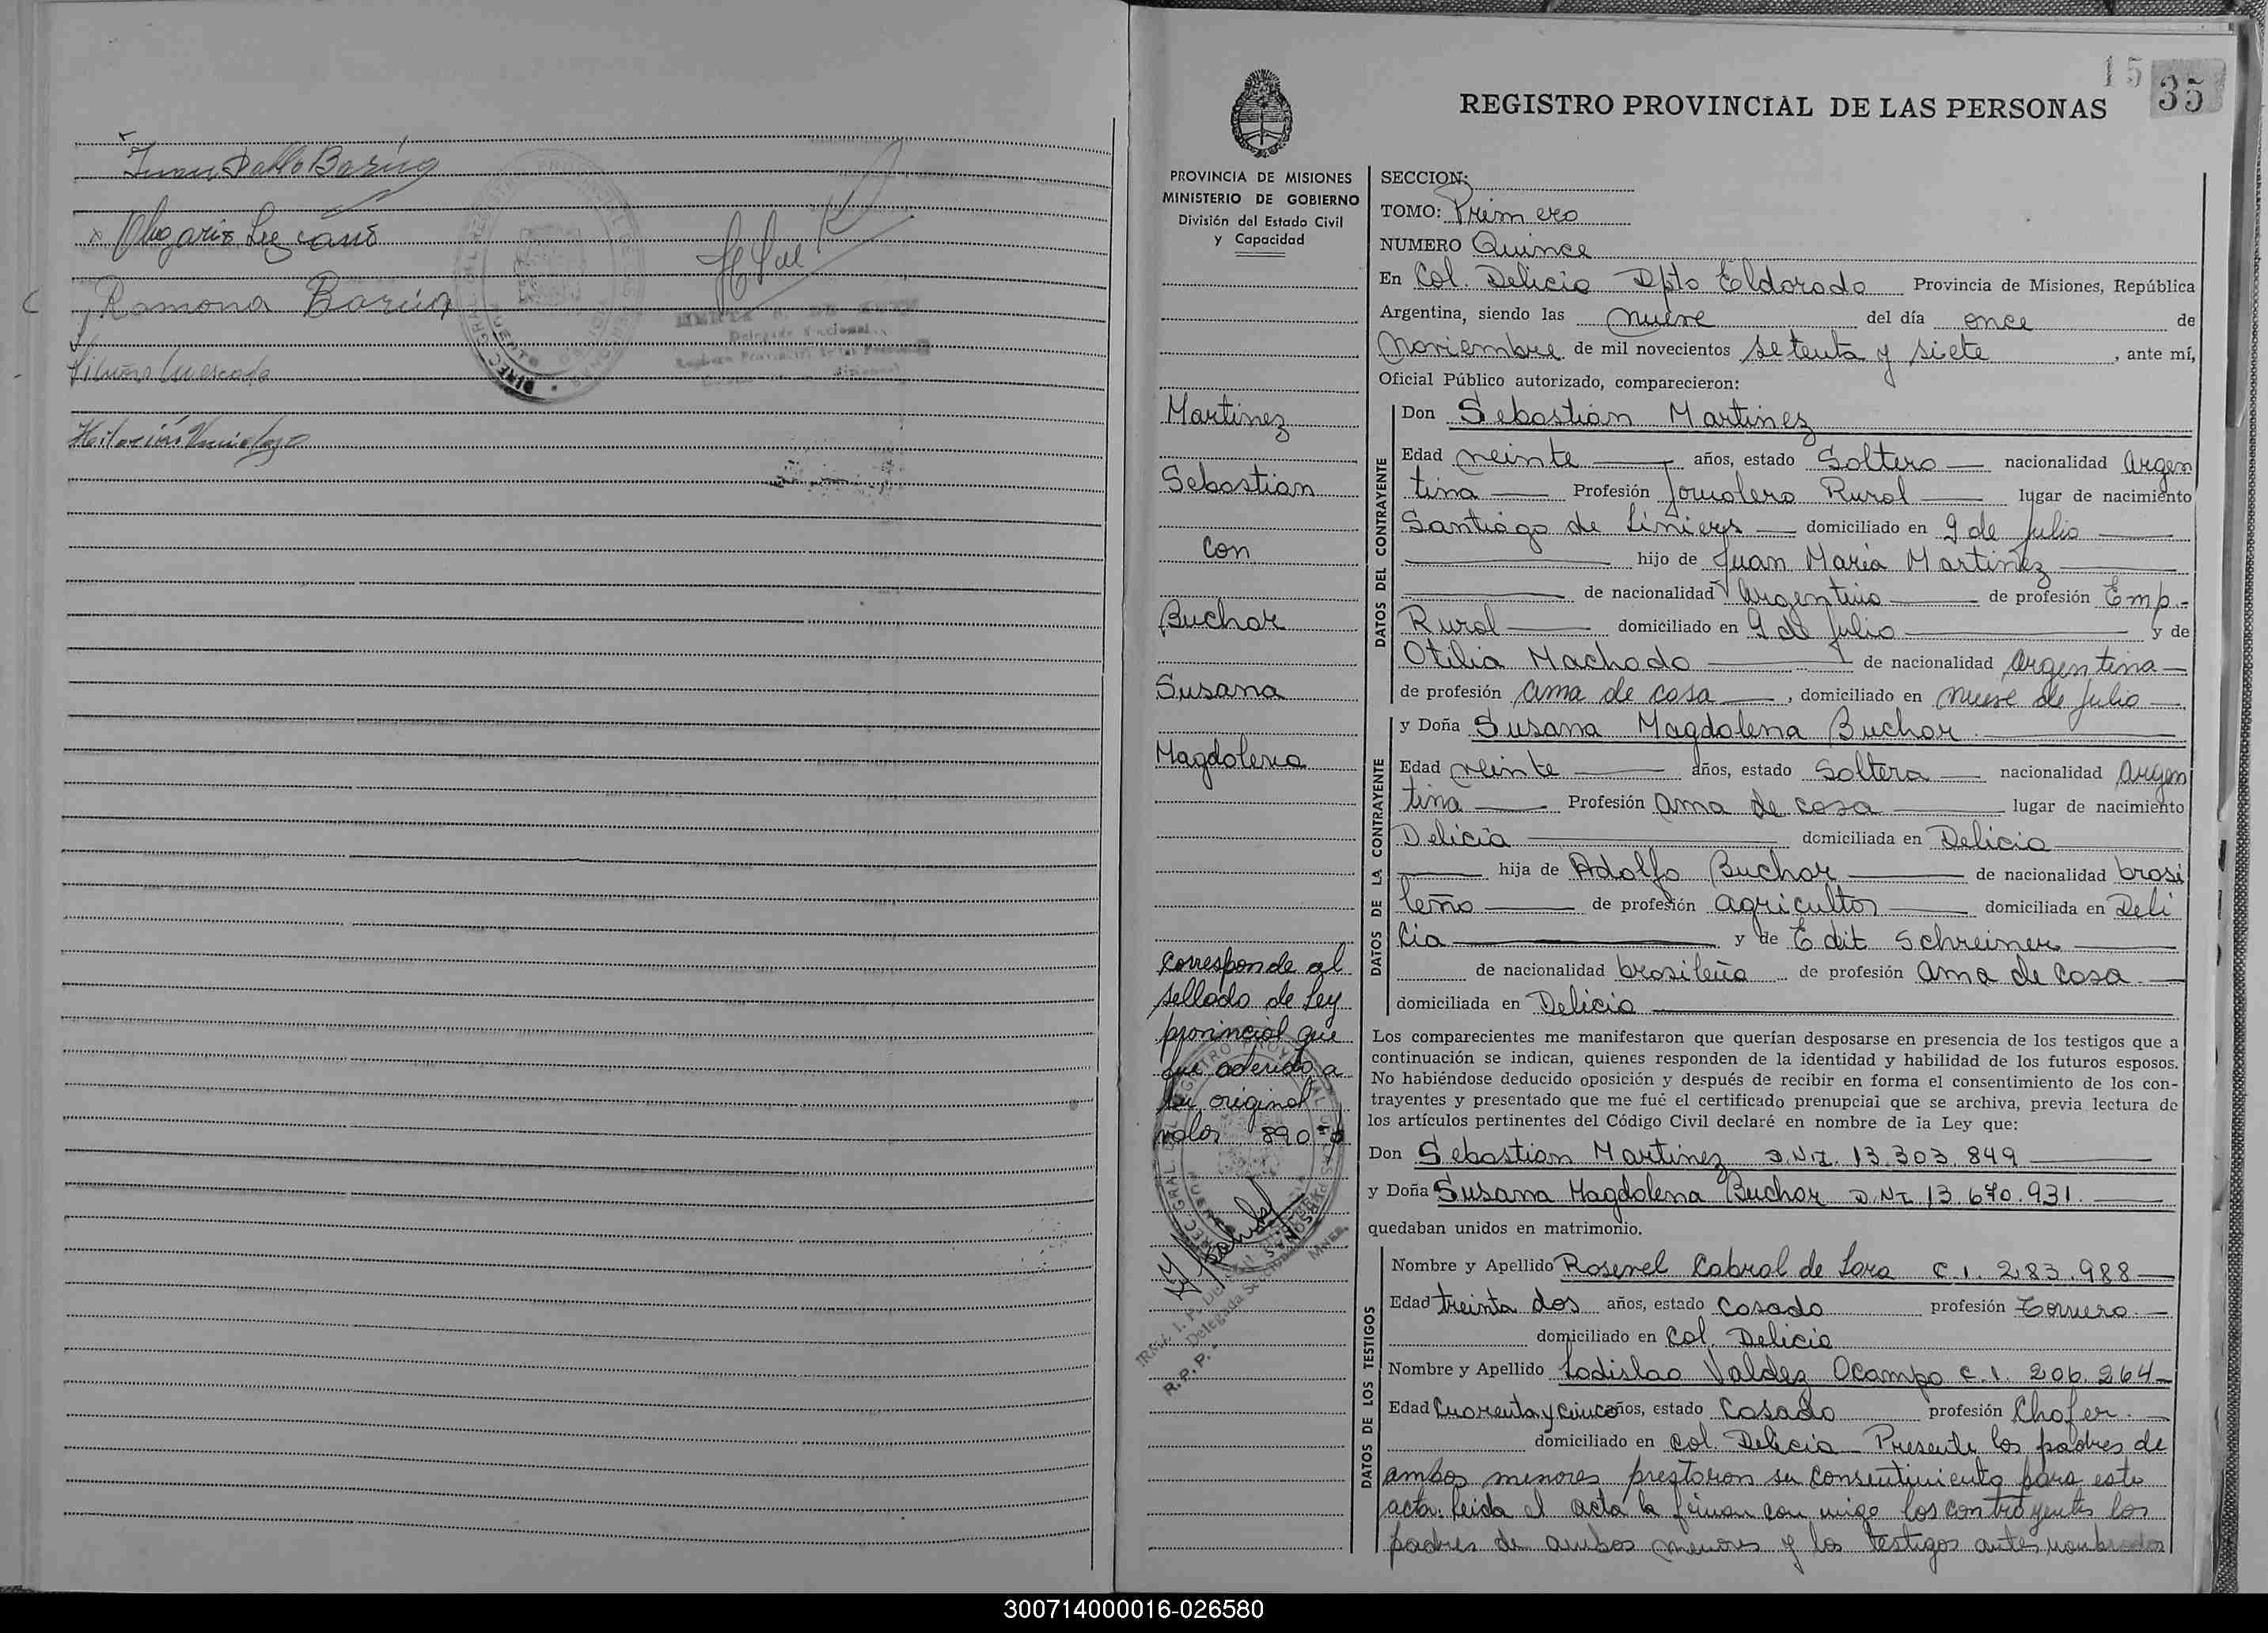 Juan Pablo Barúa
Olegario Lezcano
Ramona Barúa
Delegada Seccional
Registro Provincial de las Personas
15
35
REGISTRO PROVINCIAL DE LAS PERSONAS
PROVINCIA DE MISIONES
MINISTERIO DE GOBIERNO
División del Estado Civil
y Capacidad
Martinez
Sebastian
con
Buchar
Susana
Magdalena
Corresponde al
sellado de Ley
provincial que
fue aderido a
su original
valor 890
R.P.P.
SECCION:
TOMO: Primero
NUMERO Quince
En Col. Delicia Dpto Eldorado Provincia de Misiones, República
Argentina, siendo las nueve del día once de
Noviembre de mil novecientos setenta y siete, ante mí,
Oficial Público autorizado, comparecieron:
DATOS DEL CONTRAYENTE
Don Sebastián Martinez
Edad veinte años, estado Soltero nacionalidad Argen
tina Profesión Jornalero Rural lugar de nacimiento
Santiago de Liniers domiciliado en 9 de Julio
hijo de Juan María Martinez
de nacionalidad Argentino de profesión Emp.
Rural domiciliado en 9 de Julio y de
Otilia Machado de nacionalidad Argentina
de profesión ama de casa, domiciliado en nueve de Julio
DATOS DE LA CONTRAYENTE
y Doña Susana Magdalena Buchar
Edad veinte años, estado Soltera nacionalidad Argen
tina Profesión ama de casa lugar de nacimiento
Delicia domiciliada en Delicia
hija de Adolfo Buchar de nacionalidad brasi
leño de profesión agricultor domiciliada en Deli
cia y de Edit Schreiner
de nacionalidad brasileña de profesión ama de casa
domiciliada en Delicia
Los comparecientes me manifestaron que querían desposarse en presencia de los testigos que a
continuación se indican, quienes responden de la identidad y habilidad de los futuros esposos.
No habiéndose deducido oposición y después de recibir en forma el consentimiento de los con-
trayentes y presentado que me fué el certificado prenupcial que se archiva, previa lectura de
los artículos pertinentes del Código Civil declaré en nombre de la Ley que:
Don Sebastian Martinez D.N.I. 13.303.849
y Doña Susana Magdalena Buchar D.N.I 13.670.931.
quedaban unidos en matrimonio.
DATOS DE LOS TESTIGOS
Nombre y Apellido Rosenel Cabral de Lara C.I. 283.988
Edad treinta dos años, estado Casado profesión Tornero
domiciliado en Col. Delicia
Nombre y Apellido Ladislao Valdez Ocampo C.I. 206.264
Edad Cuarenta y cinco años, estado Casado profesión Chofer.
domiciliado en Col. Delicia Presente los padres de
ambos menores prestaron su consentimiento para este
acta. leida el acta la firman con migo los contrayentes los
padres de ambos menores y los testigos antes nombrados
300714000016-026580